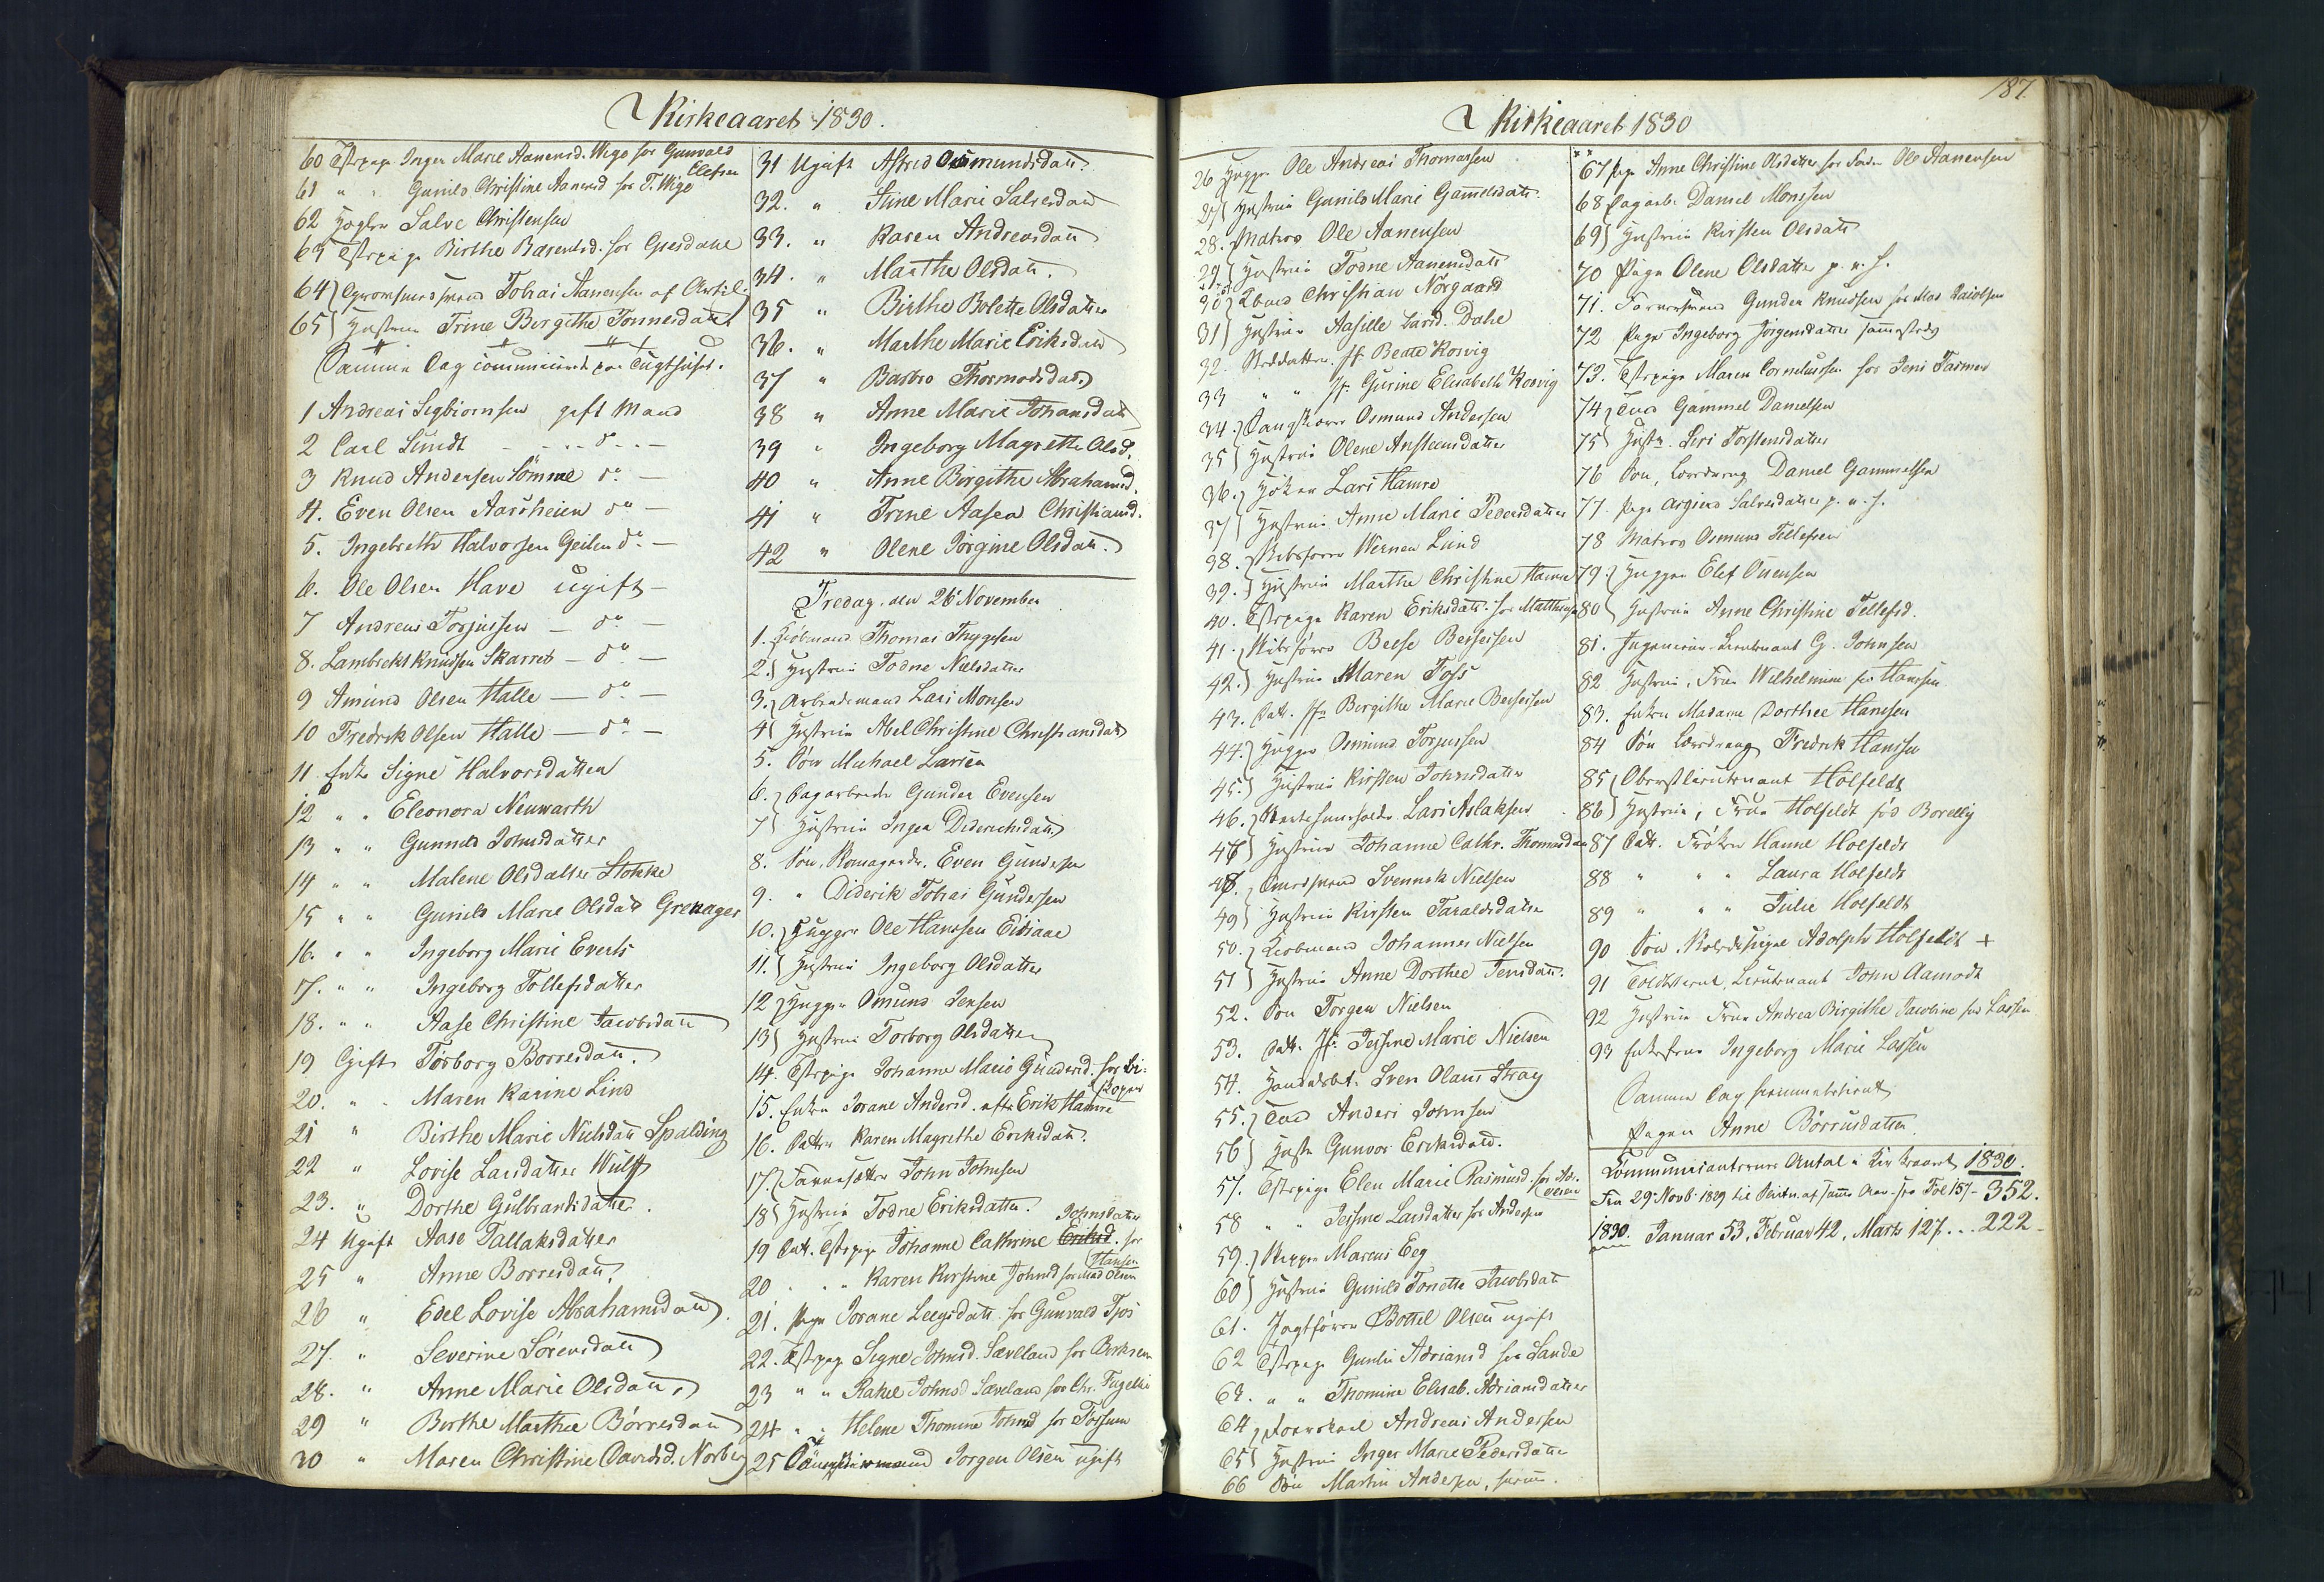 Kirkeaaret 1830.
60 Tstpige Inger Marie Aanensd. Wige for Gunvald
Elefsen
61 " " Gunild Christine Aanensd for T. Wige
62 Salve Christensen
63 Tstpige Birthe Barentsd. for Gresdahl
64 Tobias Aanensen af Artil.
65 Hustrue Trine Birgithe Tonnesdatt
Samme Dag communicerede paa Tugthuset.
1 Andreas Sigbiornsen gift Mand
2 Carl Lundt do
3 Knud Andersen Lömme do
4. Even Olsen Aarsheien do
5. Ingebreth Halvorsen Geilen do
6. Ole Olsen Have ugift
7 Andreas Torjussen do
8. Lambrekt Knudsen Skarret do
9 Amund Olsen Halle do
10 Fredrik Olsen Halle do
11 Enke Signe Halvorsdatter
12 " " Eleonora Neuwarth
13 " " Gunnild Johnsdatter
14 " " Malene Olsdatter Stokke
15 " " Gunild Marie Olsdatt Grenager
16. " " Ingeborg Marie Everts
17. " " Ingeborg Tollefsdatter
18. " " Aase Christine Jacobsdatt
19 Gift Torborg Borresdatt.
20. " Maren Karine Lind
21 " Birthe Marie Nielsdatt Spalding
22 " Lovise Larsdatter Wulff
23. " Dorthe Gulbrantsdatter
24 Ugift Aase Tallaksdatter
25 " Anne Borresdatt.
26 " Edel Lovise Abrahamsdatt
27. " Severine Sörensdatt
28. " Anne Marie Olsdatt.
29 " Birthe Marthe Börresdatt
30 " Maren Christine Davidsd. Norbe
31 Ugift Astrid Osmundsdatt.
32. " Stine Marie Salvesdatt
33. " Karen Andreasdatt
34. " Marthe Olsdatt.
35 " Birthe Bolette Olsdatter
36. " Marthe Marie Eriksdatt
37 " Barbro Thormodsdatt
38 " Anne Marie Johansdatt
39 " Ingeborg Magrethe Olsd.
40 " Anne Birgithe Abrahamsd.
41 " Trine Aasea Christiansd.
42 " Olene Jörgine Olsdatt.
Fredag den 26 November
1. Kiöbmand Thomas Thygesen
2. Hustrue Todne Nielsdatter
3. Arbeidsmand Lars Monsen
4 Hustrue Abel Christine Christiansdatt
5. Sön Michael Larsen
6. Dagarbeider Gunder Evensen
7 Hustrue Inger Dideriksdatt
8. Sön, Even Gundersen
9. " Diderik Tobias Gundersen
10. Hugger Ole Hanssen Eidsaae
11. Hustrue Ingeborg Olsdatter
12 Hugger Omund Jensen
13 Hustrue Torborg Olsdatter
14. Tstpige Johanne Marie Gundersd. for Bi-
skopen
15. Enke Jorane Andersd. efter Erik Hamre
16. Datter Karen Magrethe Eriksdatt.
17. John Johnsen
18 Hustrue Todne Eriksdatter. Johnsdatter
19 Datt. Tstpige Johanne Cathrine Eriksd. for
Hansen
20 " " Karen Kirstine Johnsd for Mad Olsen
21. Pige Jorane Leegsdatt. for Gunvald Tjos
22. Tstpige Signe Johnsd. Sævland for Berksen
23 " " Rakel Johnsd Sævland for Chr. Fugellie
24 " " Helene Thomine Johnsd for Torssum
25 Jorgen Olsen ugift
187.
Kirkeaaret 1830
26 Hugger Ole Andreas Thomassen
27 Hustrue Gunild Marie Gamelsdatt.
28. Matros Ole Aanensen
29 Hustrue Todne Aanensdatt
30 Christian Nörgaard
31 Hustrue Aasille Larsd. Dahl
32. Steddatter Jf. Beate Kosvig
33 " " Jf. Gurine Elisabeth Kosvig
34. Osmund Andersen
35 Hustrue Olene Anstensdatter
36. Höker Lars Hamre
37 Hustrue Anne Marie Pedersdatter
38. Skibsfører Werner Lund
39. Hustrue Marthe Christine Hamre
40. Tstpige Karen Eriksdatt. for Matthiesen
41. Skibsfører Beese Beesesen
42. Hustrue Maren Foss
43. Datt. Jfr Birgithe Marie Beesesen
44. Hugger Osmund Torjussen
45. Hustrue Kirsten Johnsdatter
46. Lars Aslaksen
47 Hustrue Johanne Cathr. Thomasdatt
48. Svennik Nielsen
49 Hustrue Kirsten Taraldsdatter
50. Kiöbmand Johannes Nielsen
51 Hustrue Anne Dorthee Jensdatt.
52. Sön Jorgen Nielsen
53. Datt. Jf. Jessine Marie Nielsen
54. Handelsbet. Sven Olaus Stray
55. Anders Johnsen
56 Hustr Gunvor Eriksdatt.
57. Tstpige Elen Marie Rasmusd. for
58 " " Jessine Larsdatter for Andersen
59. Skipper Marcus Eeg
60 Hustrue Gunild Tonette Jacobsdatt
61. Jagtfører Bottel Olsen ugift
62 Tstpige Gunlie Adriansd for Lande
63. " " Thomine Elisab. Adriansdatter
64 Andreas Andersen
65 Hustrue Inger Marie Pedersdatter
66 Sön Martin Andersen,
67 Pige Anne Christine Olsdatter for Ole Aanensen
68 Dagarb. Daniel Monssen
69 Hustrue Kirsten Olsdatt
70 Pige Olene Olsdatter p. v. f.
71. Gunder Knudsen for Mad Jacobsen
72 Pige Ingeborg Jörgensdatter sammesteds
73. Tstpige Maren Corneliussen for Jens Fasmer
74 Gammel Danielsen
75 Hustr. Siri Torstensdatter
76 Sön, Daniel Gammelsen
77. Pige Asgierd Salvesdatter p. v. f.
78 Matros Osmund Tellefsen
79. Hugger Elef Ousensen
80 Hustrue Anne Christine Tellefsd.
81. Ingenieur-Lieutenant G. Johnsen
82 Hustrue, Frue Wilhelmine fød Hanssen
83. Enken Madame Dorthee Hanssen
84 Sön Fredrik Hanssen
85 Oberstlieutenant Holfeldt
86 Hustrue, Frue Holfeldt fød Borelly
87 Datt. Fröken Hanne Holfeldt
88 " " " Laura Holfeldt
89 " " " Julie Holfeldt
90 Sön, Adolph Holfeldt +
91 Lieutenant John Aamodt
92 Hustrue Frue Andrea Birgithe Jacobine fød Lassen
93 Enkefrue Ingeborg Marie Lassen
Samme Dag hiemmeberettet
Pigen Anne Börresdatter.
Communicanternes Antal i Kirkeaaret 1830.
Fra 29 Novb. 1829 til af samme Aar. fra Fol 157 - 352.
1830. Januar 53, Februar 42, Marts 127... 222